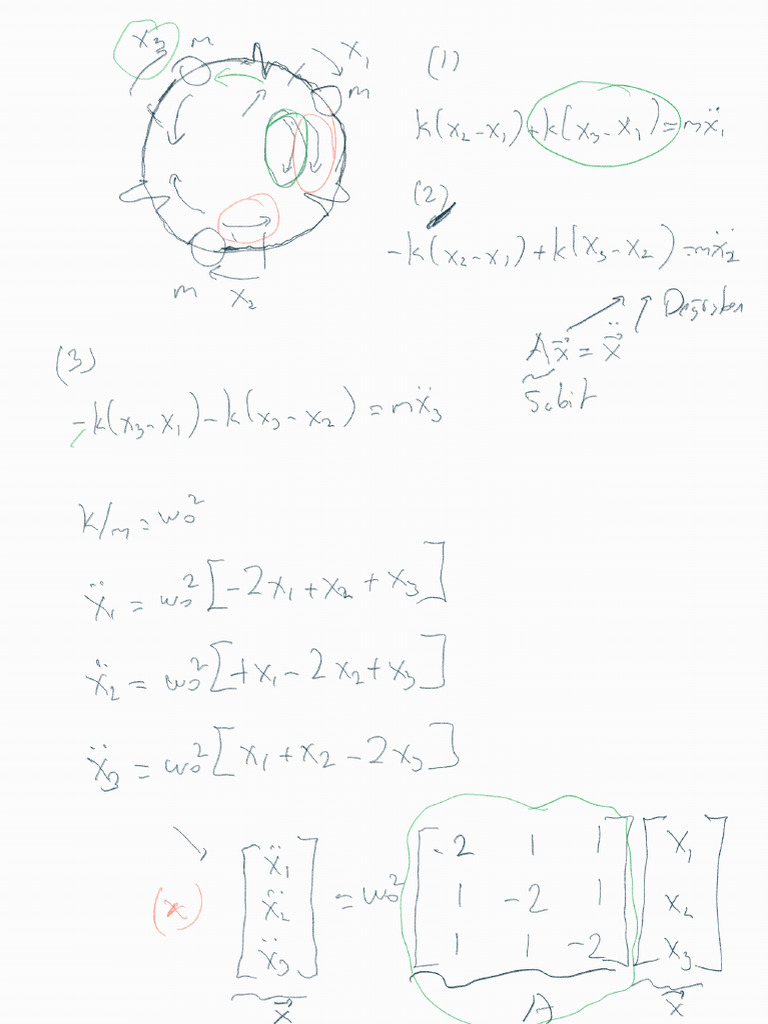 x₃ m x₁
m
m x₂
(1)
k(x₂-x₁)+k(x₃-x₁)=mẍ₁
(2)
-k(x₂-x₁)+k(x₃-x₂)=mẍ₂
Değişken
Ax⃗ = ẍ⃗
Sabit
(3)
-k(x₃-x₁)-k(x₃-x₂)=mẍ₃
k/m=w₀²
ẍ₁ = w₀²[-2x₁+x₂+x₃]
ẍ₂ = w₀²[+x₁-2x₂+x₃]
ẍ₃ = w₀²[x₁+x₂-2x₃]
(*) [ẍ₁ ẍ₂ ẍ₃] = w₀² [-2 1 1
1 -2 1
1 1 -2] [x₁ x₂ x₃]
ẍ⃗ A x⃗